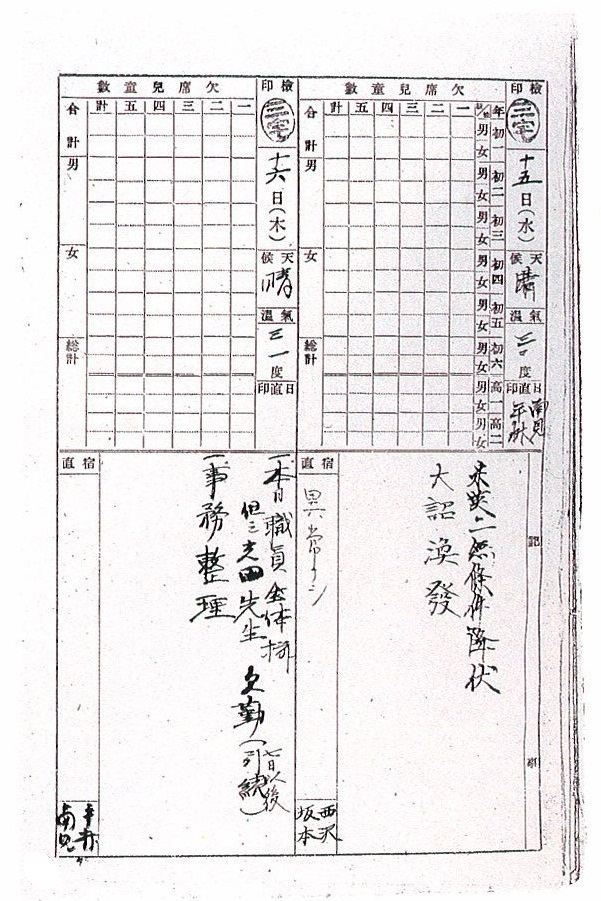 檢印 三宅
十五日(水)
天候
氣溫 三〇度
日直印 南見
欠席兒童數
年 初一 初二 初三 初四 初五 初六 高一 高二
男 女 男 女 男 女 男 女 男 女 男 女 男 女 男 女
一
二
三
四
五
計
合計 男 女 総計
記事
米英ニ無條件降伏
大詔渙發
宿直 異常ナシ
西沢
坂本
檢印 三宅
十六日(木)
天候 晴
氣溫 三一度
日直印
欠席兒童數
一
二
三
四
五
計
合計 男 女 総計
一本日職員全体
但 先生 欠勤(七日以後引続)
一事務整理
宿直
南見